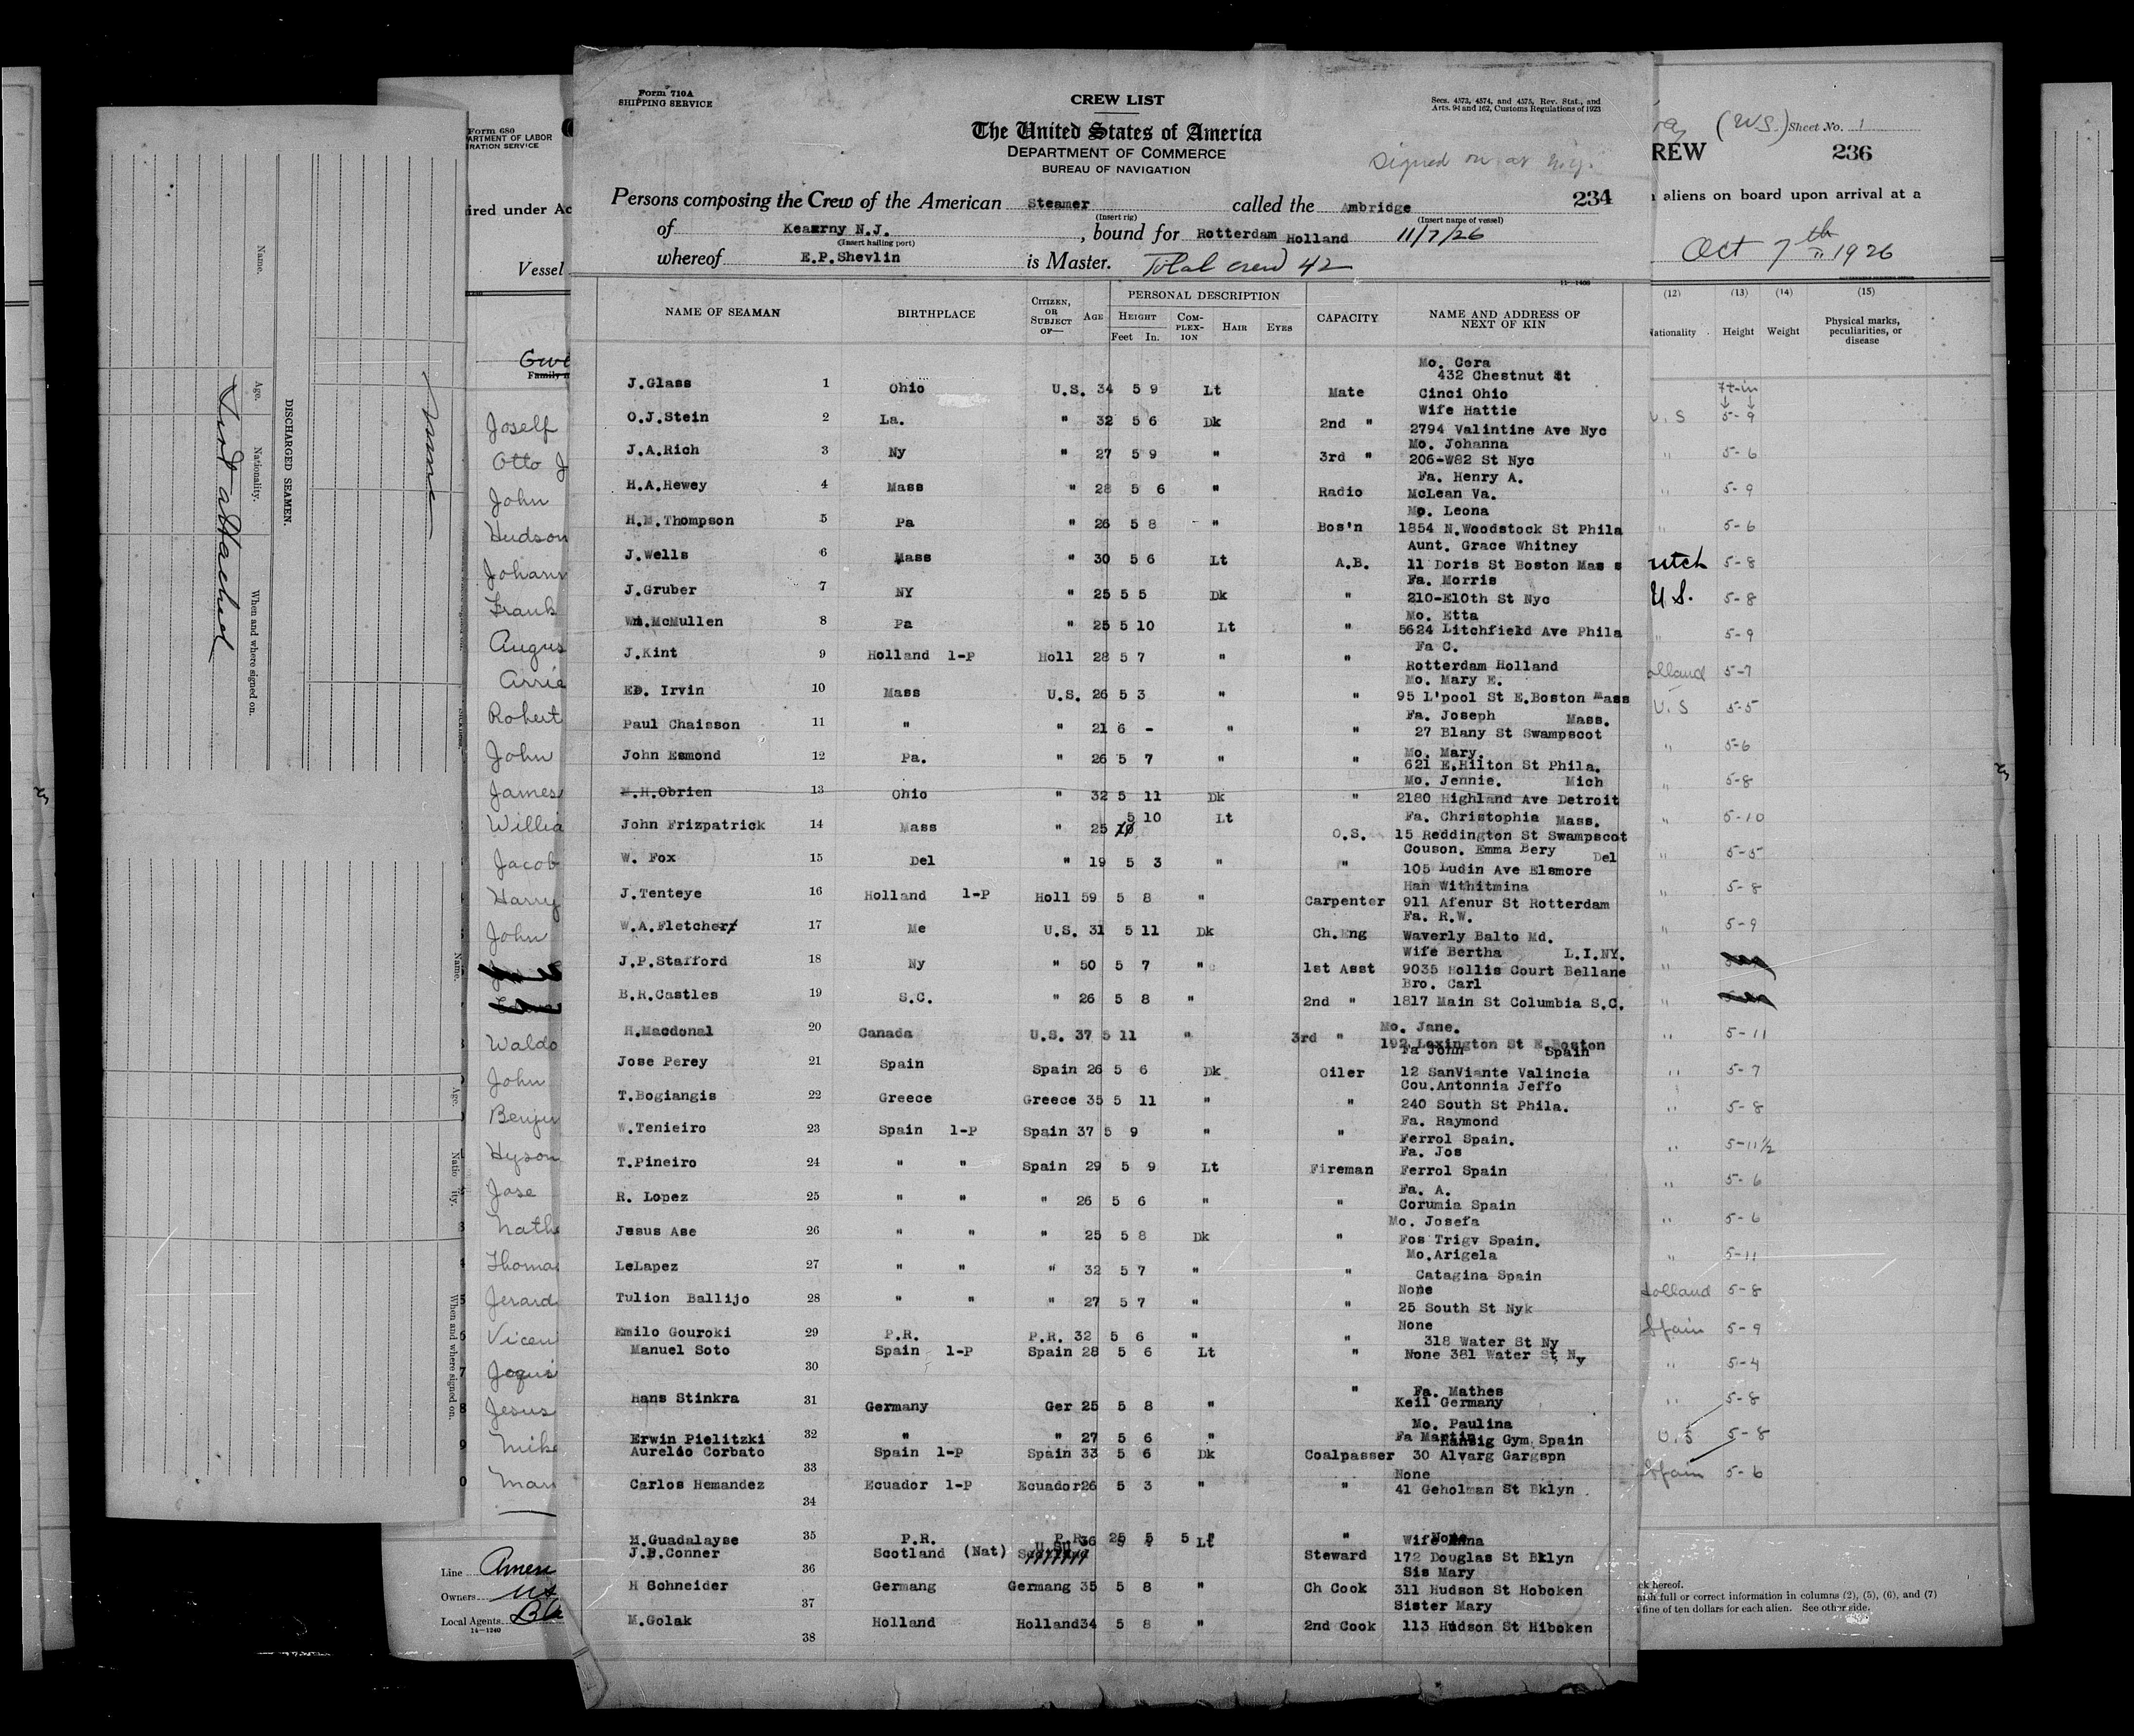 Form 710A
SHIPPING SERVICE
CREW LIST
Secs. 4573, 4574, and 4575, Rev. Stat., and
Arts. 94 and 162, Customs Regulations of 1923
The United States of America
DEPARTMENT OF COMMERCE
BUREAU OF NAVIGATION
Signed on at N.Y.
234
Persons composing the Crew of the American Steamer called the Ambridge
(Insert rig) (Insert name of vessel)
of Kearny N.J. , bound for Rotterdam Holland 11/7/26
(Insert hailing port)
whereof E.P.Shevlin is Master. Total crew 42
NAME OF SEAMAN BIRTHPLACE CITIZEN, OR SUBJECT OF— AGE PERSONAL DESCRIPTION HEIGHT Feet In. COMPLEXION HAIR EYES CAPACITY NAME AND ADDRESS OF NEXT OF KIN
Mo. Cora
432 Chestnut St
J.Glass 1 Ohio U.S. 34 5 9 Lt Mate Cinci Ohio
Wife Hattie
O.J.Stein 2 La. " 32 5 6 Dk 2nd " 2794 Valintine Ave Nyc
Mo. Johanna
J.A.Rich 3 Ny " 27 5 9 " 3rd " 206-W82 St Nyc
Fa. Henry A.
H.A.Hewey 4 Mass " 28 5 6 " Radio McLean Va.
Mo. Leona
H.M.Thompson 5 Pa " 26 5 8 " Bos'n 1854 N.Woodstock St Phila
Aunt. Grace Whitney
J.Wells 6 Mass " 30 5 6 Lt A.B. 11 Doris St Boston Mas s
Fa. Morris
J.Gruber 7 NY " 25 5 5 Dk " 210-E10th St Nyc
Mo. Etta
Wm.McMullen 8 Pa " 25 5 10 Lt " 5624 Litchfield Ave Phila
Fa C.
J.Kint 9 Holland 1-P Holl 28 5 7 " " Rotterdam Holland
Mo. Mary E.
ED. Irvin 10 Mass U.S. 26 5 3 " " 95 L'pool St E.Boston Mass
Fa. Joseph Mass.
Paul Chaisson 11 " " 21 6 - " " 27 Blany St Swampscot
Mo. Mary.
John Esmond 12 Pa. " 26 5 7 " " 621 E.Hilton St Phila.
Mo. Jennie. Mich
M.H.Obrien 13 Ohio " 32 5 11 Dk " 2180 Highland Ave Detroit
Fa. Christophia Mass.
John Frizpatrick 14 Mass " 25 5 10 Lt O.S. 15 Reddington St Swampscot
Couson. Emma Bery Del
W. Fox 15 Del " 19 5 3 " " 105 Ludin Ave Elsmore
Han Withitmina
J.Tenteye 16 Holland 1-P Holl 59 5 8 " Carpenter 911 Afenur St Rotterdam
Fa. R.W.
W.A.Fletcher 17 Me U.S. 31 5 11 Dk Ch.Eng Waverly Balto Md.
Wife Bertha L.I.NY.
J.P.Stafford 18 Ny " 50 5 7 " 1st Asst 9035 Hollis Court Bellane
Bro. Carl
B.R.Castles 19 S.C. " 26 5 8 " 2nd " 1817 Main St Columbia S.C.
Mo. Jane.
H.Macdonal 20 Canada U.S. 37 5 11 " 3rd " 192 Lexington St E.Boston
Fa John Spain
Jose Perey 21 Spain Spain 26 5 6 Dk Oiler 12 SanViante Valincia
Cou.Antonnia Jeffo
T.Bogiangis 22 Greece Greece 35 5 11 " " 240 South St Phila.
Fa. Raymond
W.Tenieiro 23 Spain 1-P Spain 37 5 9 " " Ferrol Spain.
Fa. Jos
T.Pineiro 24 " " Spain 29 5 9 Lt Fireman Ferrol Spain
Fa. A.
R. Lopez 25 " " " 26 5 6 " " Corumia Spain
Mo. Josefa
Jesus Ase 26 " " " 25 5 8 Dk " Fos Trigv Spain.
Mo.Arigela
LeLapez 27 " " " 32 5 7 " " Catagina Spain
None
Tulion Ballijo 28 " " " 27 5 7 " " 25 South St Nyk
None
Emilo Gouroki 29 P.R. P.R. 32 5 6 " " 318 Water St Ny
Manuel Soto 30 Spain 1-P Spain 28 5 6 Lt " None 381 Water St, Ny
Fa. Mathes
Hans Stinkra 31 Germany Ger 25 5 8 " " Keil Germany
Mo. Paulina
Erwin Pielitzki 32 " " 27 5 6 " Danzig Gym
Fa Martin Spain
Aurelio Corbato 33 Spain 1-P Spain 33 5 6 Dk Coalpasser 30 Alvarg Gargspn
None
Carlos Hemandez 34 Ecuador 1-P Ecuador 26 5 3 " " 41 Geholman St Bklyn
M.Guadalayse 35 P.R. P.R. 25 5 5 " " None
Wife Anna
J.B.Conner 36 Scotland (Nat) U.S. 36 Lt Steward 172 Douglas St Bklyn
Sis Mary
H Schneider 37 Germang Germang 35 5 8 " Ch Cook 311 Hudson St Hoboken
Sister Mary
M.Golak 38 Holland Holland 34 5 8 " 2nd Cook 113 Hudson St Hiboken
Form 680
ARTMENT OF LABOR
RATION SERVICE
ired under Ac
Vessel
Family n
Joself
Otto J
John
Hudson
Johann
Frank
Augus
Arrie
Robert
John
James
Willia
Jacob
Harry
John
Waldo
John
Benju
Hyson
Jose
Nath
Thoma
Jerard
Vicen
Joqui
Jesus
Mike
Man
Line Amer
Owners US
Local Agents
14—1240
(WS) Sheet No. 1
REW 236
n aliens on board upon arrival at a
Oct 7th 1926
(12) (13) (14) (15)
Nationality Height Weight Physical marks, peculiarities, or disease
ft-in
U.S 5-9
" 5-6
" 5-9
" 5-6
utch 5-8
U.S. 5-8
" 5-9
olland 5-7
U.S 5-5
" 5-6
" 5-8
" 5-10
" 5-5
" 5-8
" 5-9
"
"
" 5-11
" 5-7
" 5-8
" 5-11 1/2
" 5-6
" 5-6
" 5-11
Holland 5-8
Spain 5-9
" 5-4
" 5-8
U.S 5-8
Spain 5-6
ck hereof.
nish full or correct information in columns (2), (5), (6), and (7)
fine of ten dollars for each alien. See other side.
None
DISCHARGED SEAMEN.
Name. Age. Nationality. When and where signed on.
List attached
Name. Age. Nationality. When and where signed on.